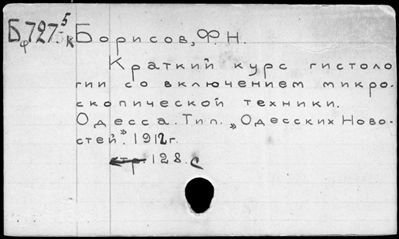 Бф727-5к Борисов, Ф. Н.
Краткий курс гистоло
гии со включением микро-
скопической техники.
Одесса. Тип. „Одесских Ново-
стей". 1912 г.
стр 128. с